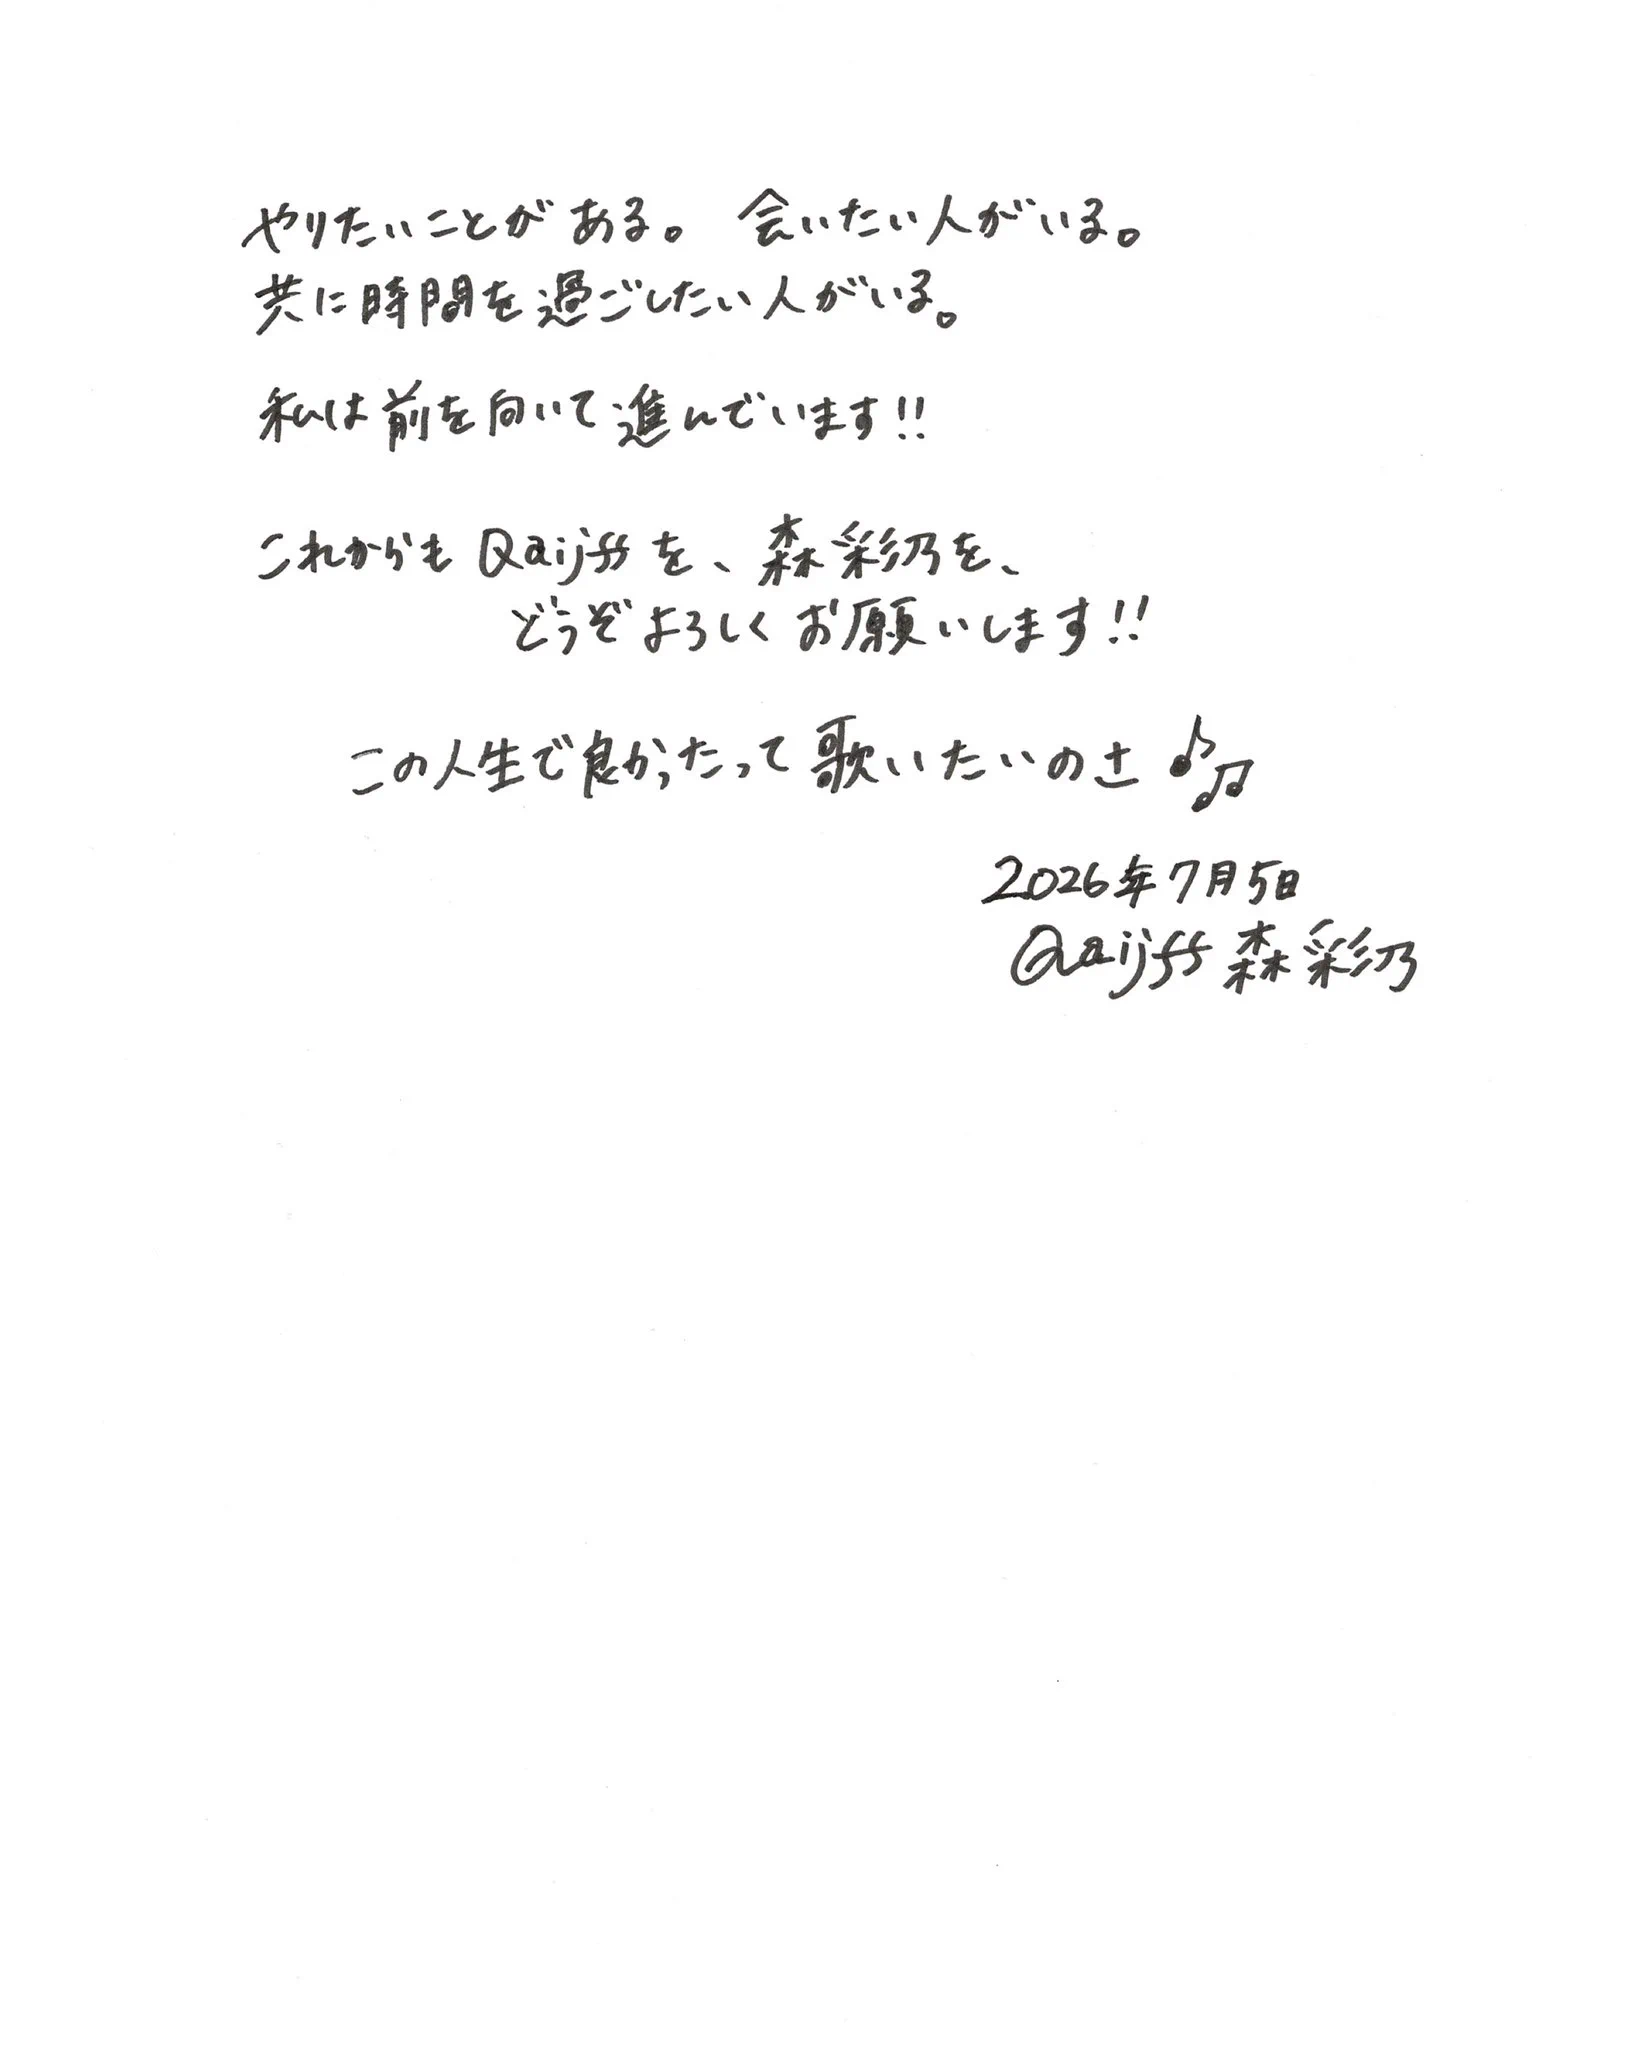 やりたいことがある。 会いたい人がいる。
共に時間を過ごしたい人がいる。
私は前を向いて進んでいます!!
これからもQaijffを、森彩乃を、
どうぞよろしくお願いします!!
この人生で良かったって歌いたいのさ♪♫
2026年7月5日
Qaijff 森彩乃